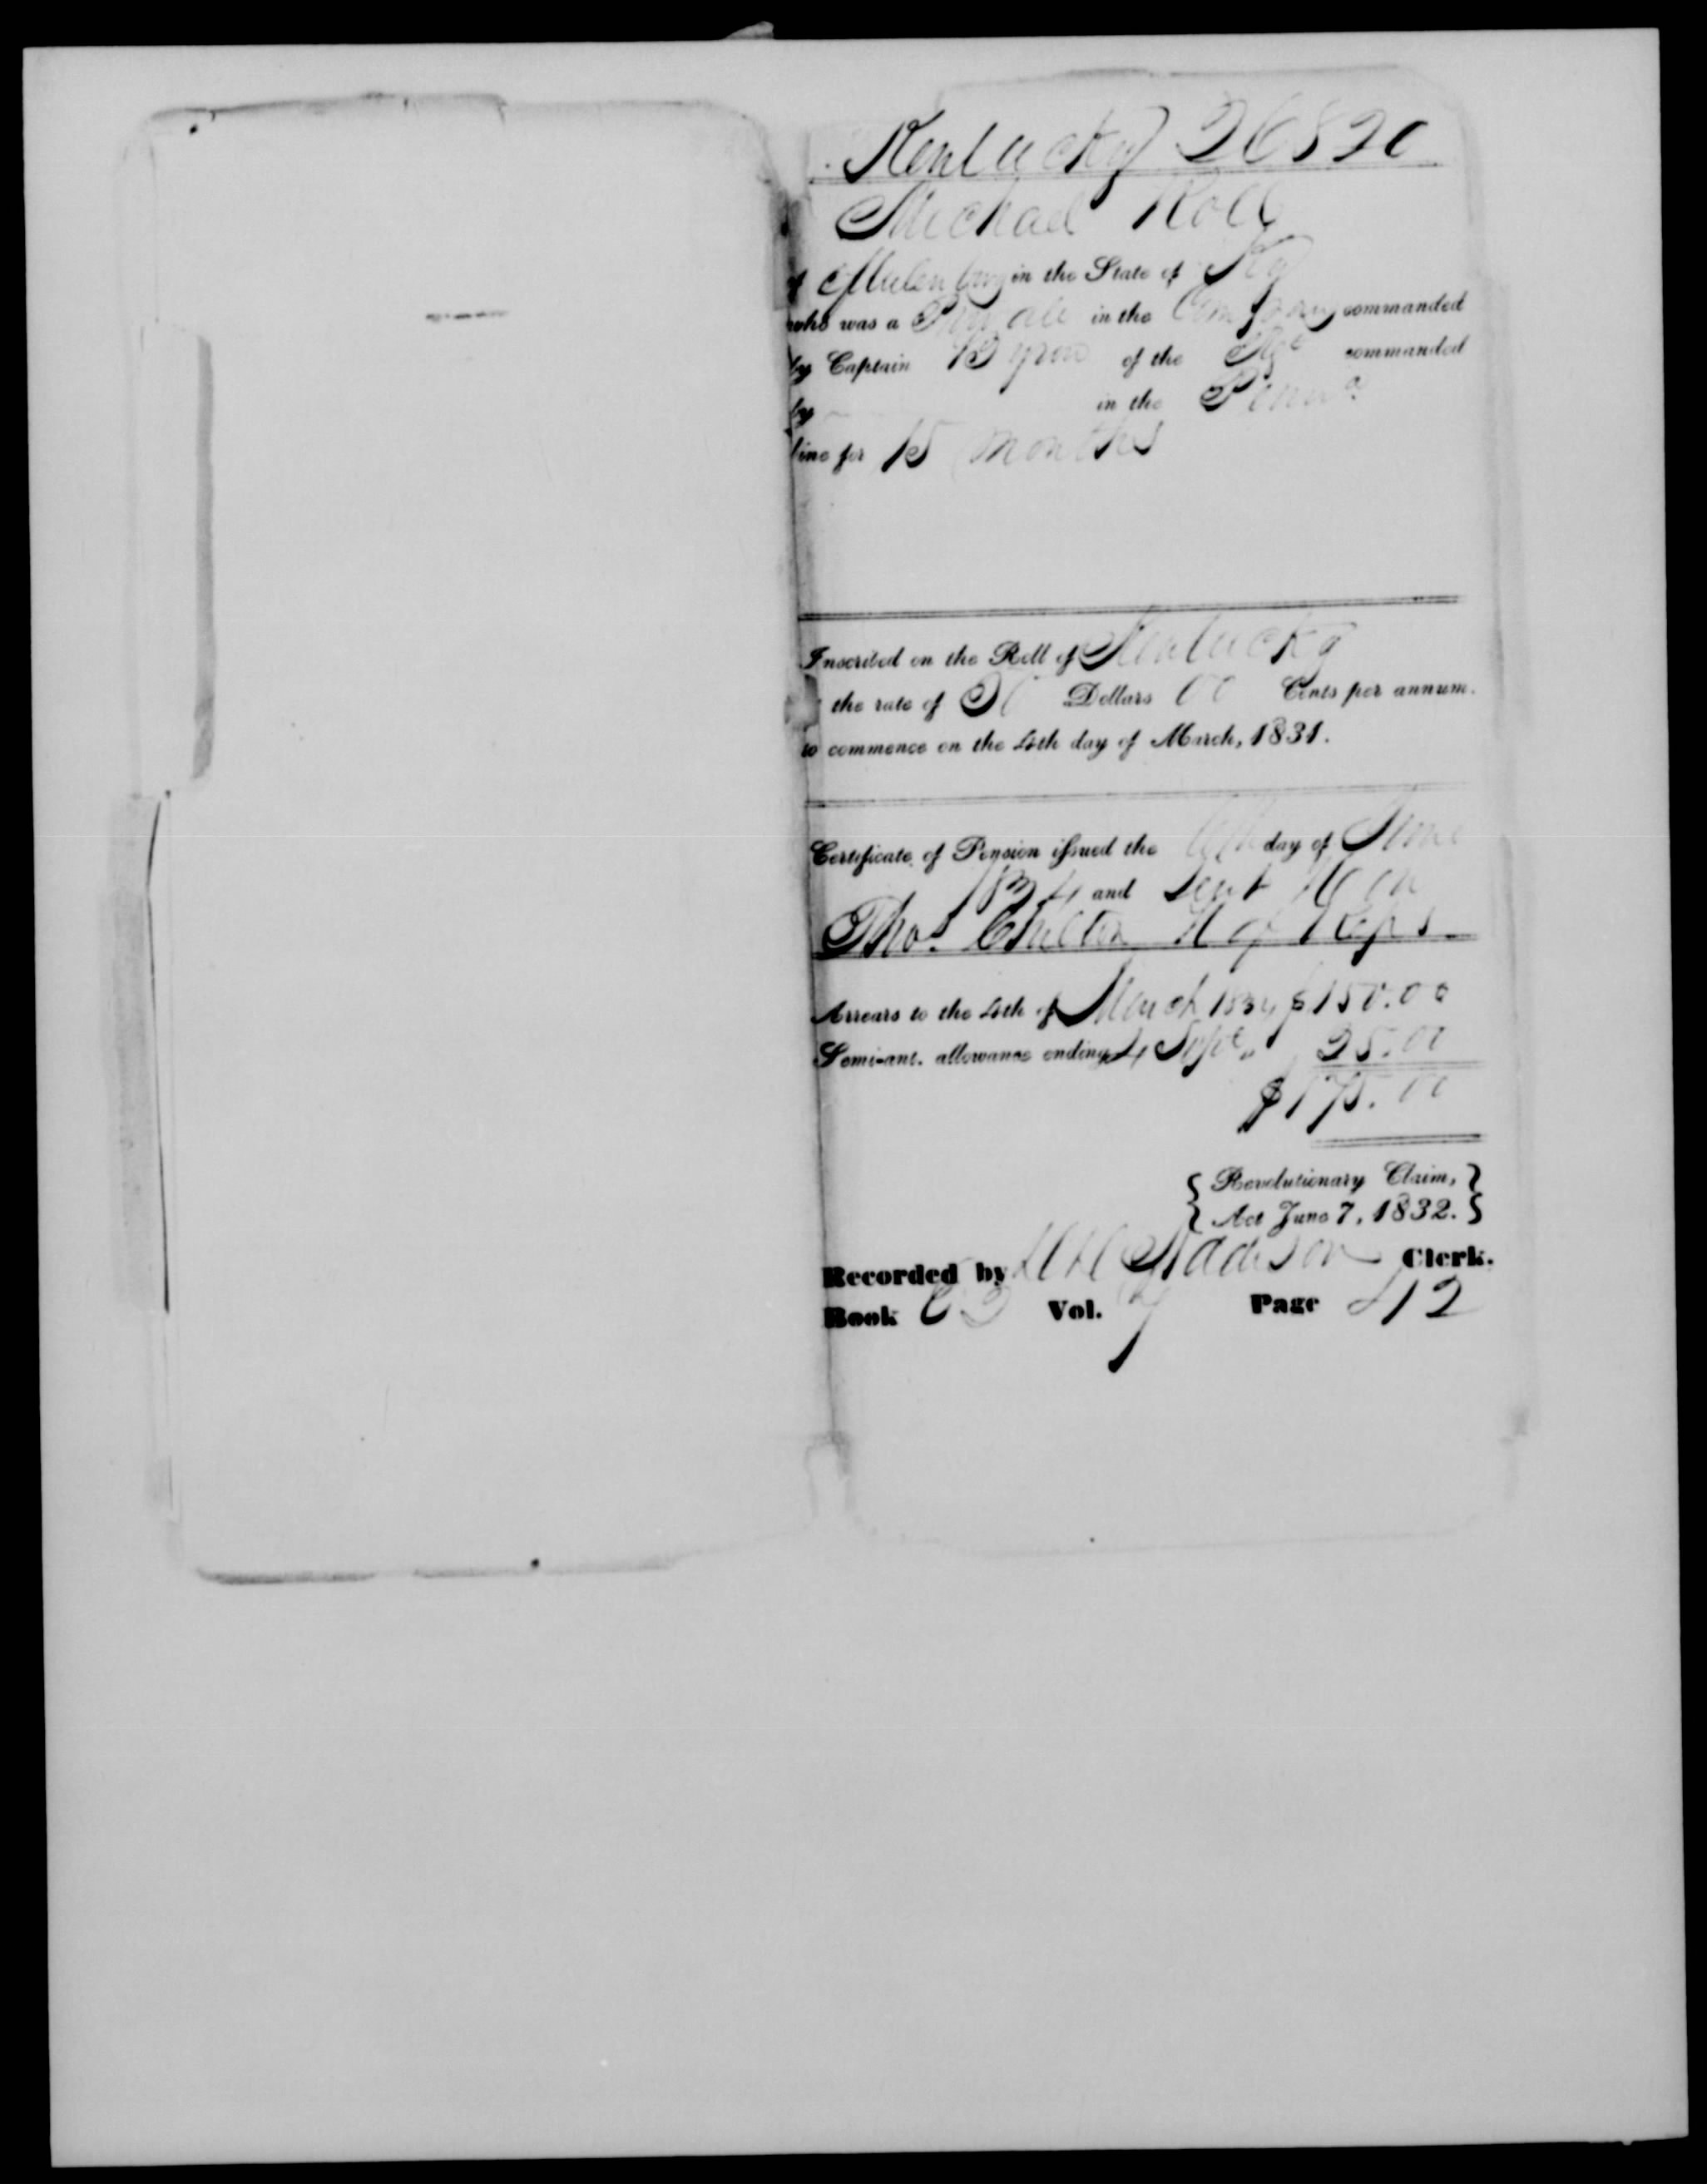 Kentucky 26820
Michael Roll
of Mulenburg in the State of Ky
who was a Private in the Company commanded
by Captain Byrow of the Rgt commanded
by in the Penna
line for 15 months
Inscribed on the Roll of Kentucky
the rate of 50 Dollars 00 Cents per annum.
to commence on the 4th day of March, 1831.
Certificate of Pension issued the day of June
1834 and Sent Hon
Thos. Chilton H of Reps
Arrears to the 4th of March 1834 $150.00
Semi-anl. allowance ending 4 Sept " 25.00
$175.00
{ Revolutionary Claim, }
{ Act June 7, 1832. }
Recorded by Addison Clerk.
Book Vol. 7 Page 412